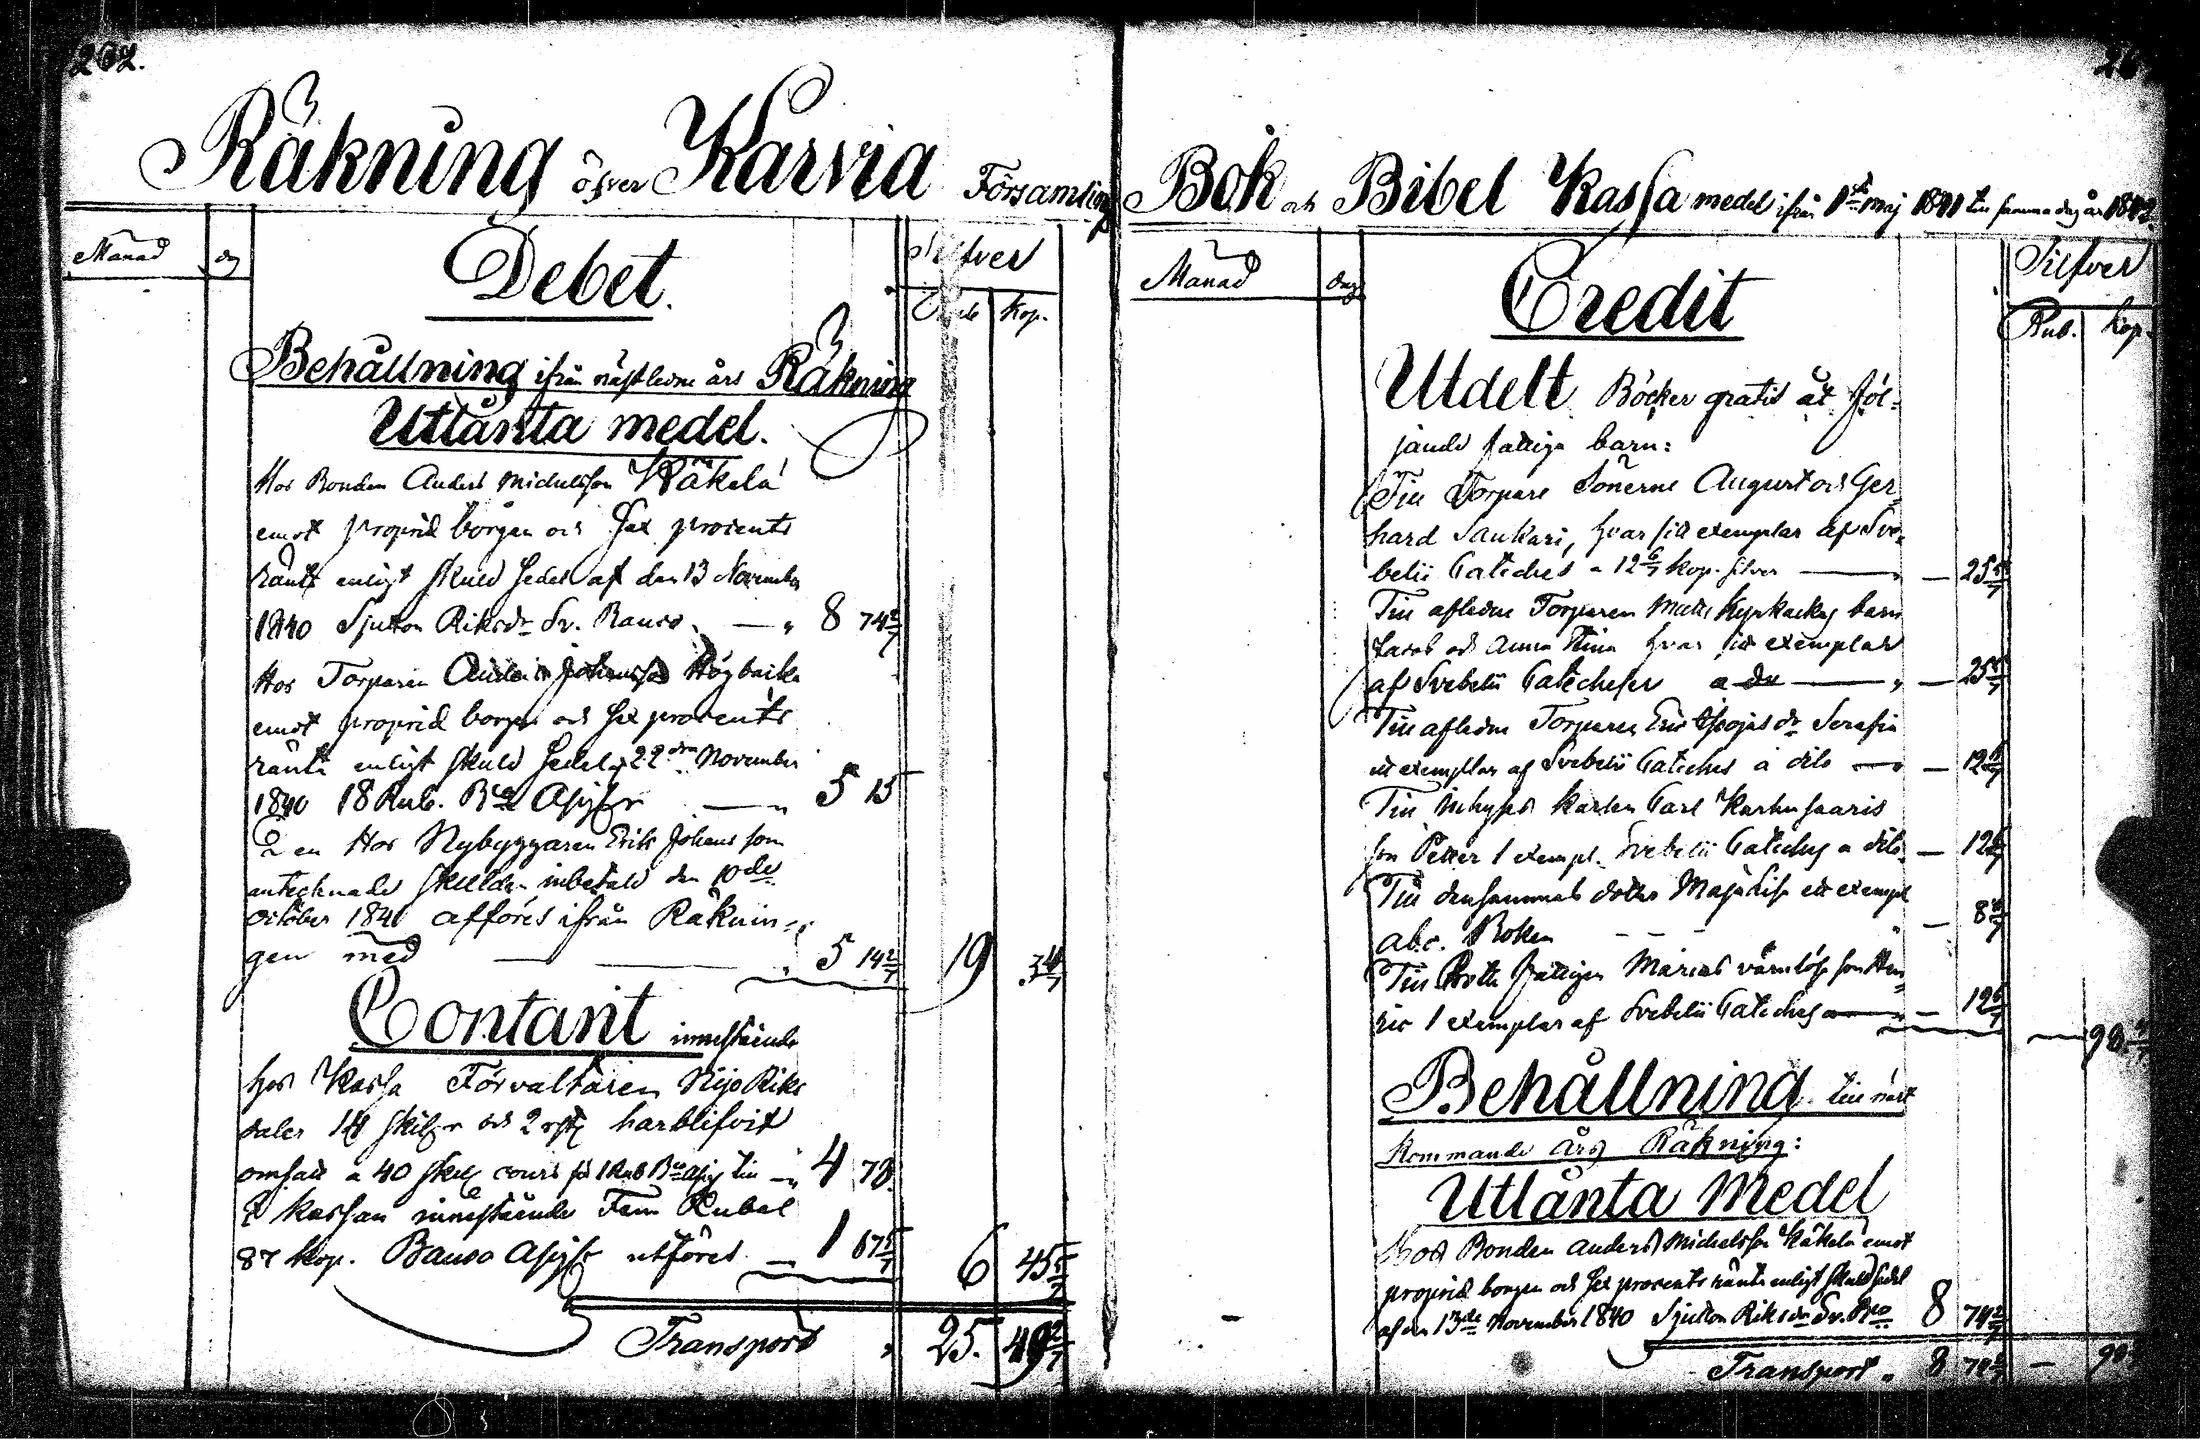 262.
Räkning öfver Karvia Församlings
Månad dag
Debet.
Silfver
Rub. Kop.
Behållning ifrån nästledne års Räkning
Utlånta medel.
Hos Bonden Anders Michelsson Käkelä
emot proprie borgen och sex procents
ränta enligt skuld sedel af den 13 November
1840 Sjutton Riksdr Sv. Banco. — „ 8 74 2/7
Hos Torparen Johansson Högbacka
emot proprie borgen och sex procents
ränta enligt skuld sedel 22dra November
1840 18 Rub. Bco Assign — „ 5 15
Den Hos Nybyggaren Erik Johansson
antecknade skulden inbetald den 10de
October 1841 afföres ifrån Räknin-
gen med — — „ 5 14 2/7 19 3 4/7
Contant innestående
hos Kassa Förvaltaren Nijo Riks
daler 14 skill och 2 rst har blifvit
omsatt a 40 skill cours för 1 Rub Bco assig till — „ 4 78.
I kassan innestående Fem Rubel
87 kop. Banco Assign utföres — 1 67 5/7 6 45 5/7
Transport „ 25. 49 2/7
Bok och Bibel Kassa medel ifrån 1sta maj 1841 till samma dag år 1842.
Månad dag
Credit
Silfver
Rub. kop.
Utdelt Böcker gratis åt föl-
jande fattiga barn:
Till Torpare Sönerne August och Ger-
hard Saukari, hvar sitt exemplar af Sve-
belii Cateches a 12 6/7 kop. silver — „ — 25 5/7
Till afledne Torparen Matts Kyrkackas barn
Jacob och Anna Stina hvar sitt exemplar
af Svebelii Catecheser a do — „ — 25 5/7
Till afledne Torparen Eric dr Serafia
ett exemplar af Svebelii Cateches à dito — — 12 6/7
Till Inhyses karlen Carl Karhusaaris
son Petter 1 exempl. Svebelii Cateches a dito — 12 6/7
Till densammes dotter Maja Lisa ett exempl
abc. Boken — — — 8 4/7
Till Rote fattigen Marias värnlöse son Hen-
ric 1 exemplar af Svebelii Cateches a — — 12 6/7 — 98 4/7
Behållning till näst
kommande Års Räkning:
Utlånta Medel
Hos Bonden Anders Michelsson Käkelä emot
proprie borgen och sex procents ränta enligt skuldsedel
af den 13de November 1840 Sjutton Riksdr Sv. Bco 8 74 2/7
Transport „ 8 74 2/7 — 98